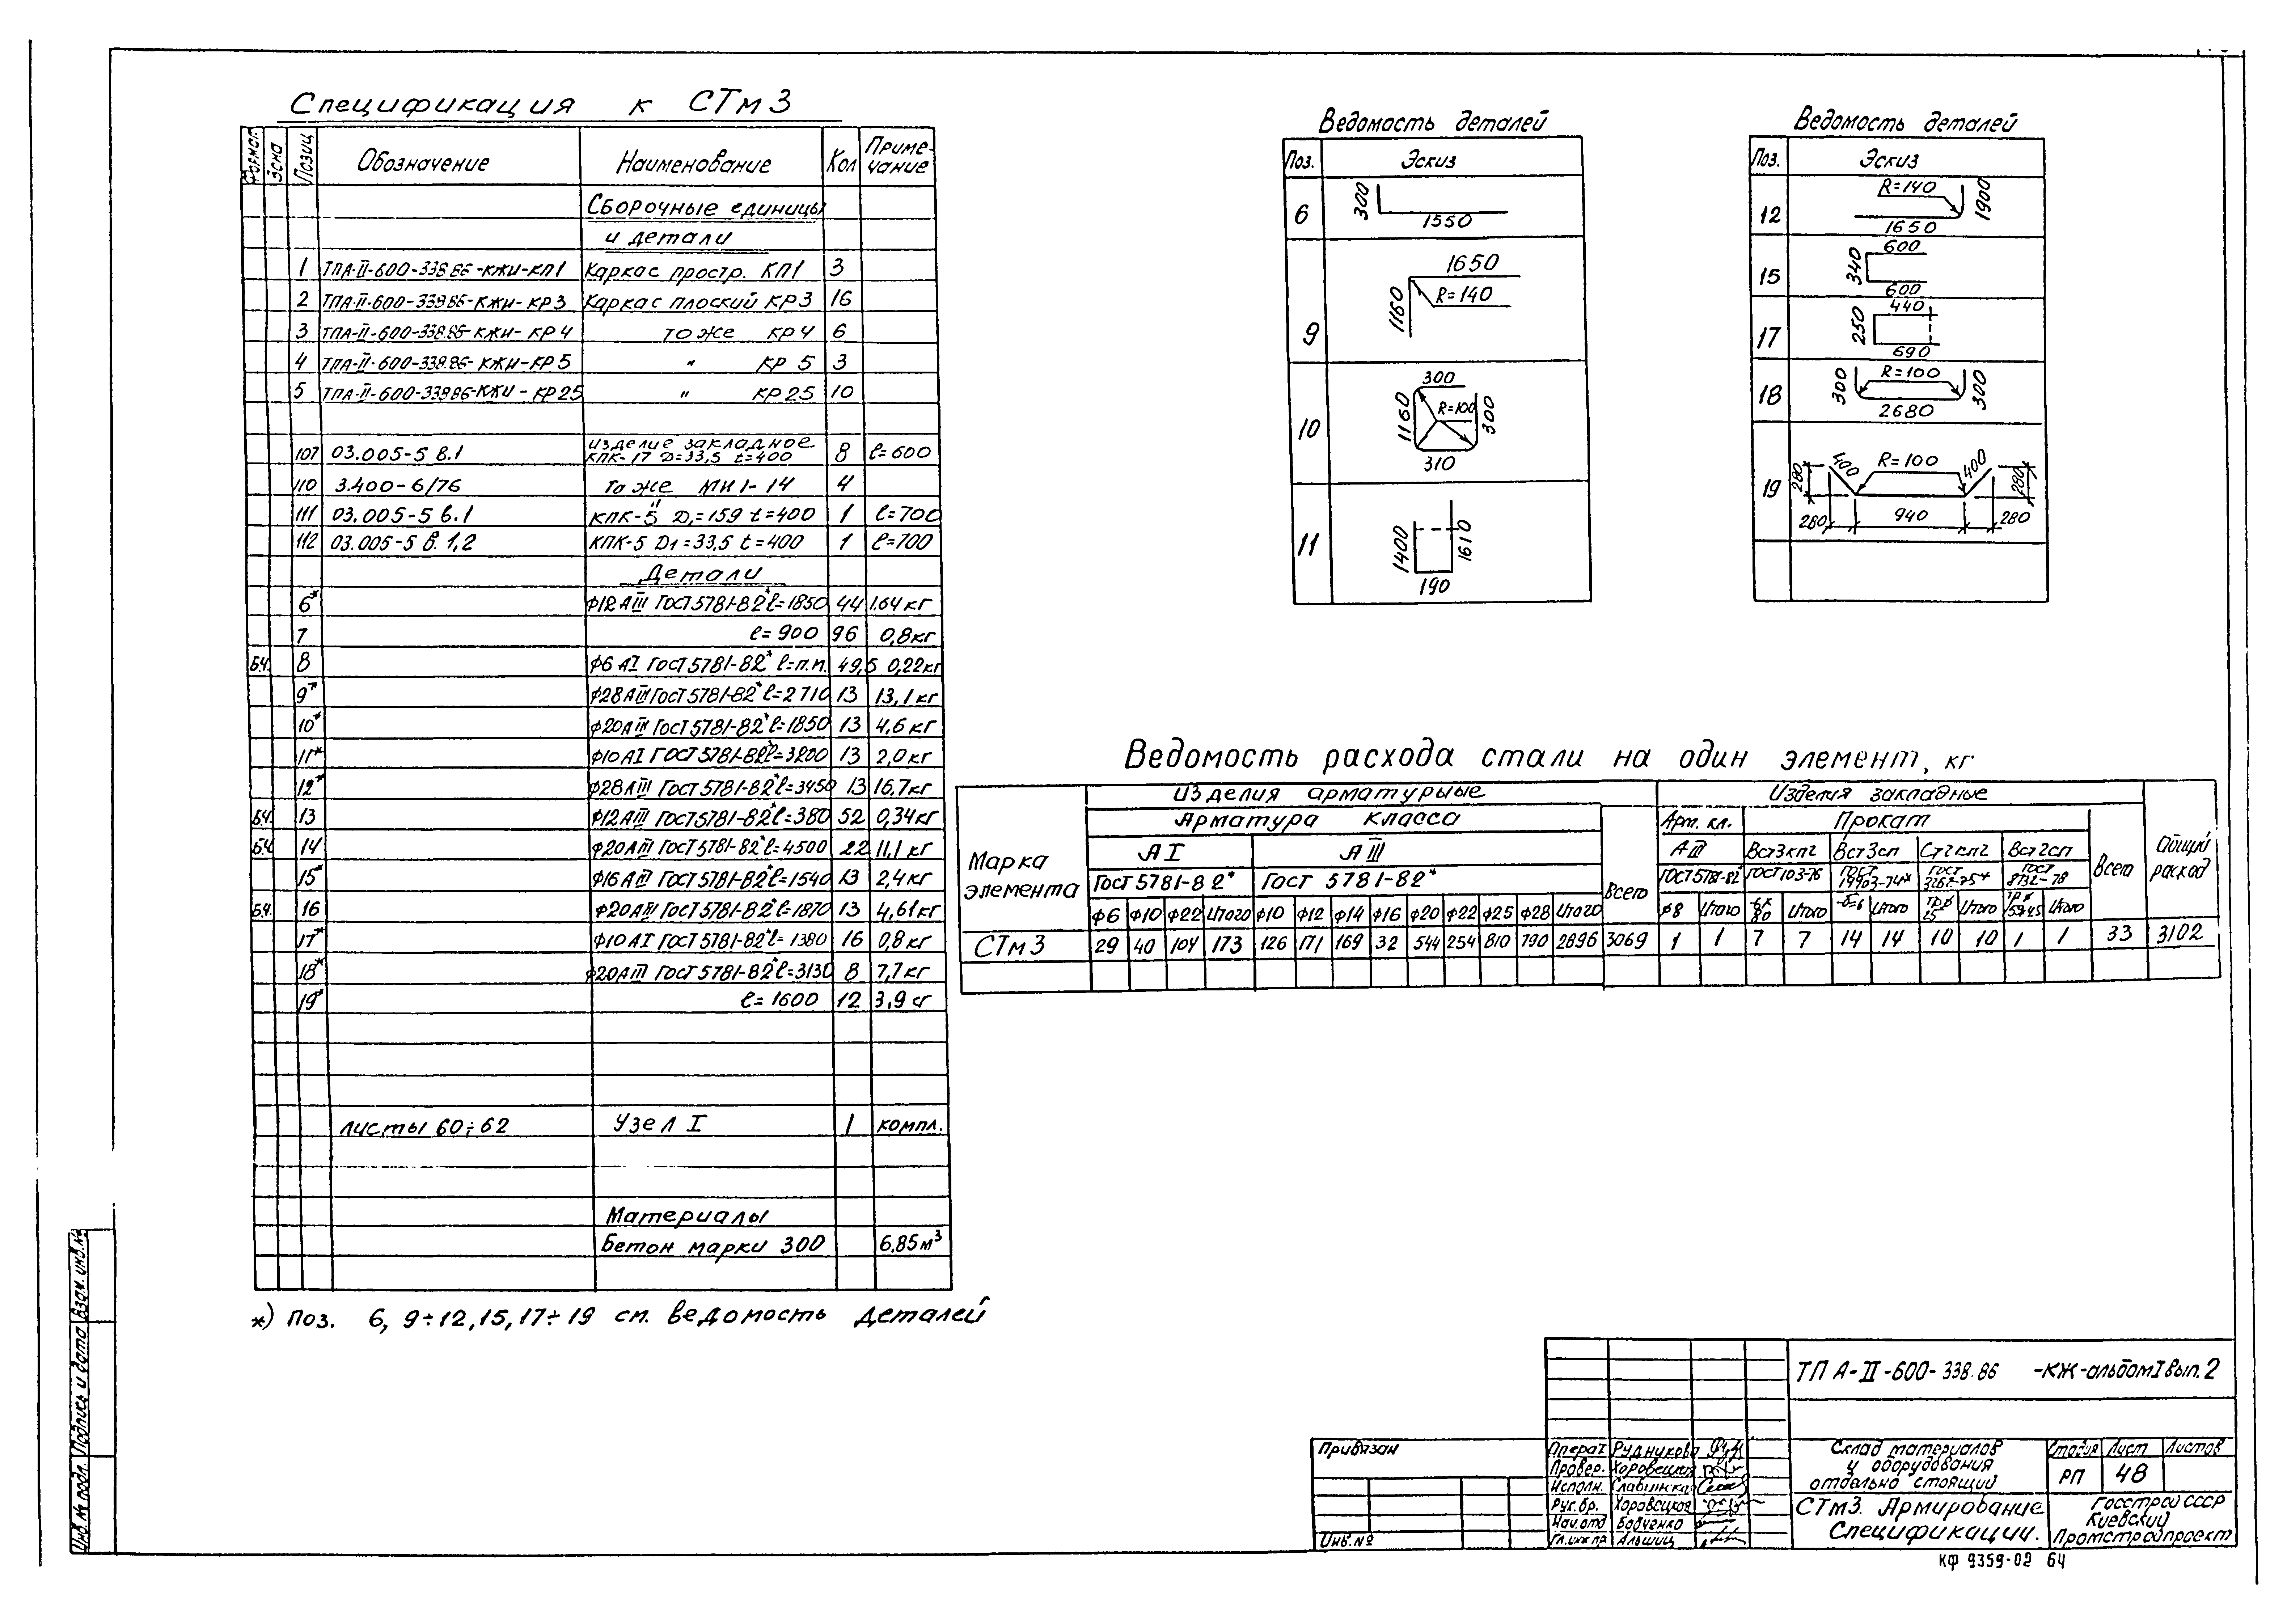 Спецификация к СТм 3
Формат Зона Позиц Обозначение Наименование Кол Примечание
Сборочные единицы
и детали
1 ТПА-II-600-338.86-КЖИ-КП1 Каркас простр. КП1 3
2 ТПА-II-600-338.86-КЖИ-КР3 Каркас плоский КР3 16
3 ТПА-II-600-338.86-КЖИ-КР4 то же КР4 6
4 ТПА-II-600-338.86-КЖИ-КР5 " КР 5 3
5 ТПА-II-600-338.86-КЖИ-КР25 " КР25 10
107 03.005-5 в.1 изделие закладное КПК-17 D=33,5 t=400 8 ℓ=600
110 3.400-6/76 то же МН1-14 4
111 03.005-5 в.1 " КПК-5 D₁=159 t=400 1 ℓ=700
112 03.005-5 в.1,2 КПК-5 D1=33,5 t=400 1 ℓ=700
Детали
6* Ф12АIII ГОСТ5781-82* ℓ=1850 44 1.64кг
7 ℓ=900 96 0,8кг
Б.Ч. 8 Ф6 АI ГОСТ5781-82* ℓ=п.м. 49,5 0,22кг
9* Ф28АIII ГОСТ5781-82* ℓ=2710 13 13,1кг
10* Ф20АIII ГОСТ5781-82* ℓ=1850 13 4,6кг
11* Ф10АI ГОСТ5781-82* ℓ=3200 13 2,0кг
12* Ф28АIII ГОСТ5781-82* ℓ=3450 13 16,7кг
Б.Ч. 13 Ф12АIII ГОСТ5781-82* ℓ=380 52 0,34кг
Б.Ч. 14 Ф20АIII ГОСТ5781-82* ℓ=4500 22 11,1кг
15* Ф16АIII ГОСТ5781-82* ℓ=1540 13 2,4кг
Б.Ч. 16 Ф20АIII ГОСТ5781-82* ℓ=1870 13 4,61кг
17* Ф10АI ГОСТ5781-82* ℓ=1380 16 0,8кг
18* Ф20АIII ГОСТ5781-82* ℓ=3130 8 7,7кг
19* ℓ=1600 12 3,9кг
листы 60÷62 Узел I 1 компл.
Материалы
Бетон марки 300 6,85м³
*) поз. 6, 9÷12,15,17÷19 см. ведомость деталей
Ведомость деталей
Поз. Эскиз
6 300 1550
9 1650 1160 R=140
10 300 1160 R=100 300 310
11 1400 1610 190
Ведомость деталей
Поз. Эскиз
12 R=140 1900 1650
15 600 340 600
17 440 250 690
18 300 R=100 300 2680
19 280 400 R=100 400 280
280 940 280
Ведомость расхода стали на один элемент, кг
Марка элемента
Изделия арматурные
Изделия закладные
Общий расход
Арматура класса
Всего
Арм. кл.
Прокат
Всего
АI АIII
АIII Вст3кп2 Вст3сп Ст2кп2 Вст2сп
ГОСТ5781-82* ГОСТ 5781-82*
ГОСТ5781-82* ГОСТ103-76 ГОСТ 19903-74* ГОСТ 3262-75* ГОСТ 8732-78
Ф6 Ф10 Ф22 Итого Ф10 Ф12 Ф14 Ф16 Ф20 Ф22 Ф25 Ф28 Итого
Ф8 Итого Итого -δ=6 Итого Итого Итого
СТм 3 29 40 104 173 126 171 169 32 544 254 810 790 2896 3069 1 1 7 7 14 14 10 10 1 1 33 3102
ТП А-II-600-338.86 -КЖ-альбом I вып. 2
Привязан
Инв.№
Операт. Рудникова
Провер. Хоровецкая
Исполн. Славинская
Рук.бр. Хоровецкая
Нач.отд Бовченко
Гл.инж.пр Альшиц
Склад материалов
и оборудования
отдельно стоящий
Стадия Лист Листов
РП 48
СТм3. Армирование
Спецификации.
Госстрой СССР
Киевский
Промстройпроект
КФ 9359-02 64
Взам. инв.№
Подпись и дата
Инв.№ подл.